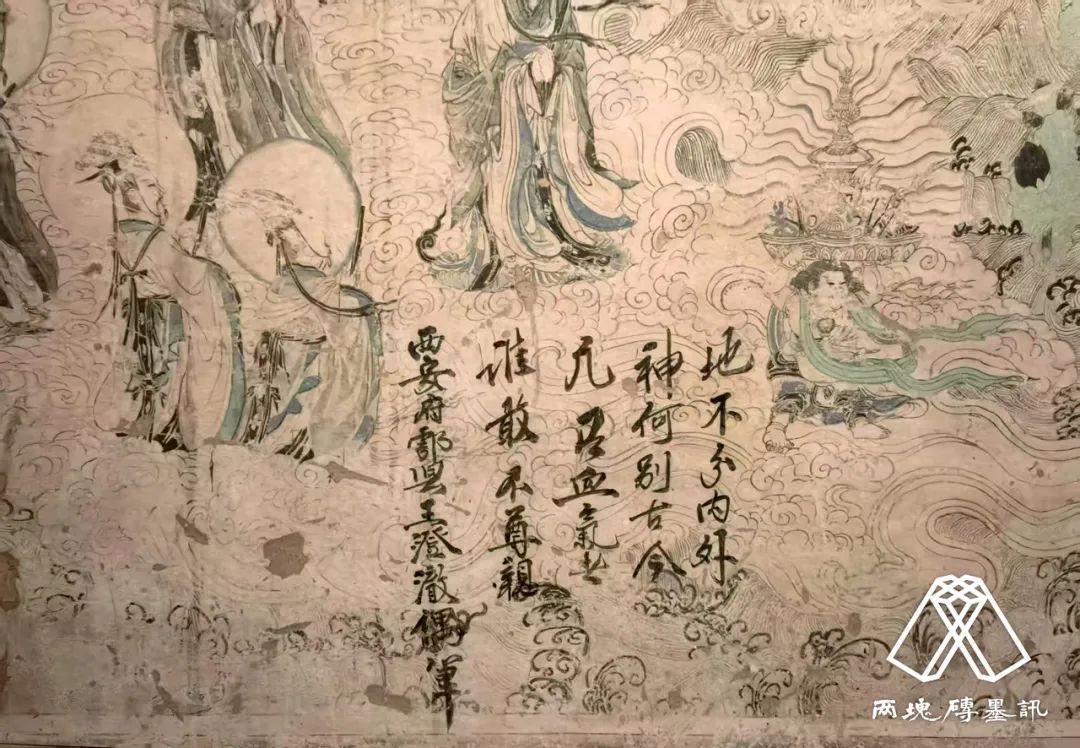 地不分内外
神何别古今
凡有血氣者
谁敢不尊親
西安府鄠县王澄澈偶
两塊磚墨訊